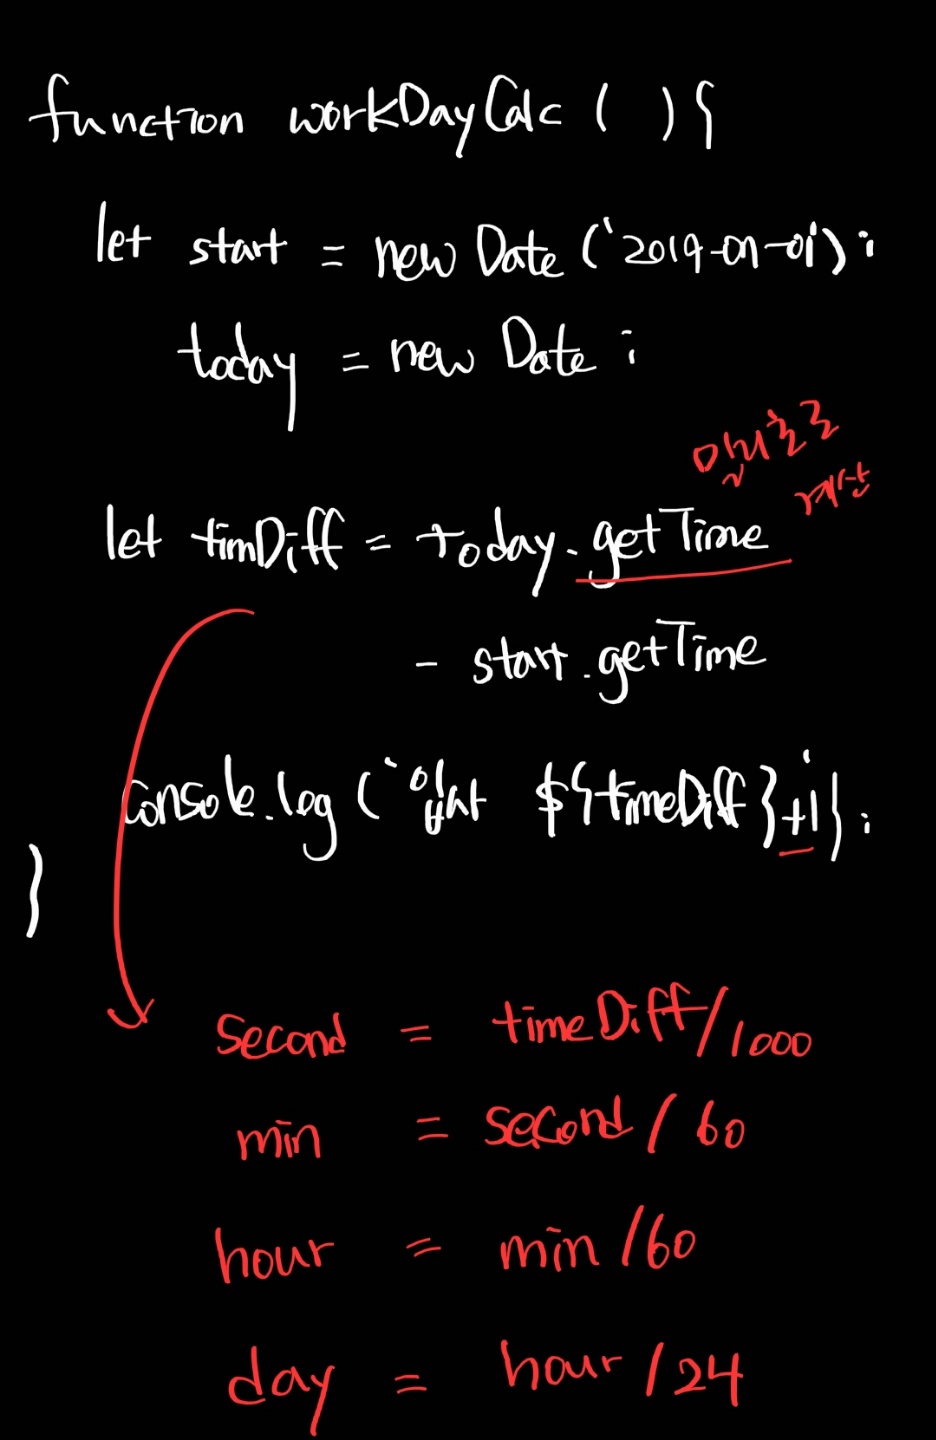 function workDayCalc ( ) {
let start = new Date ('2019-01-01') ;
today = new Date ;
밀리초로
계산
let timDiff = today.getTime
- start.getTime
console.log (` ${timeDiff}+1` ) ;
}
second = timeDiff/1000
min = second/60
hour = min/60
day = hour/24